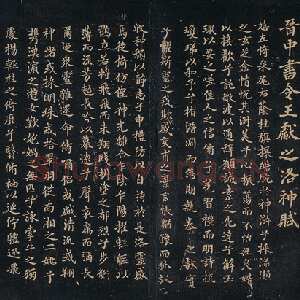 晉中書令王獻之洛神賦
嬉左倚采旄右蔭桂旗攘皓腕於神滸兮采湍瀨
之玄芝余情悅其淑美兮心振蕩而不怡無良媒
以接歡兮託微波以通辭願誠素之先達兮解玉
珮以要之嗟佳人之信脩兮羌習禮而明詩抗
瓊珶以和予兮指潛淵而為期執眷眷之款實
兮懼斯靈之我欺感交甫之棄言悵猶豫而狐疑
收和顏以靜志兮申禮防以自持於是洛靈感
焉徙倚傍徨神光離合乍陰乍陽擢輕軀以
鶴立若將飛而未翔踐椒塗之郁烈步蘅薄
而流芳超長吟以慕遠兮聲哀厲而彌長
爾迺衆靈雜遝命儔嘯侶或戲清流或翔
神渚或采明珠或拾翠羽從南湘之二妃攜
漢濱之遊女歎匏媧之無匹詠牽牛之獨
處揚輕袿之倚靡翳脩袖以延佇體迅飛